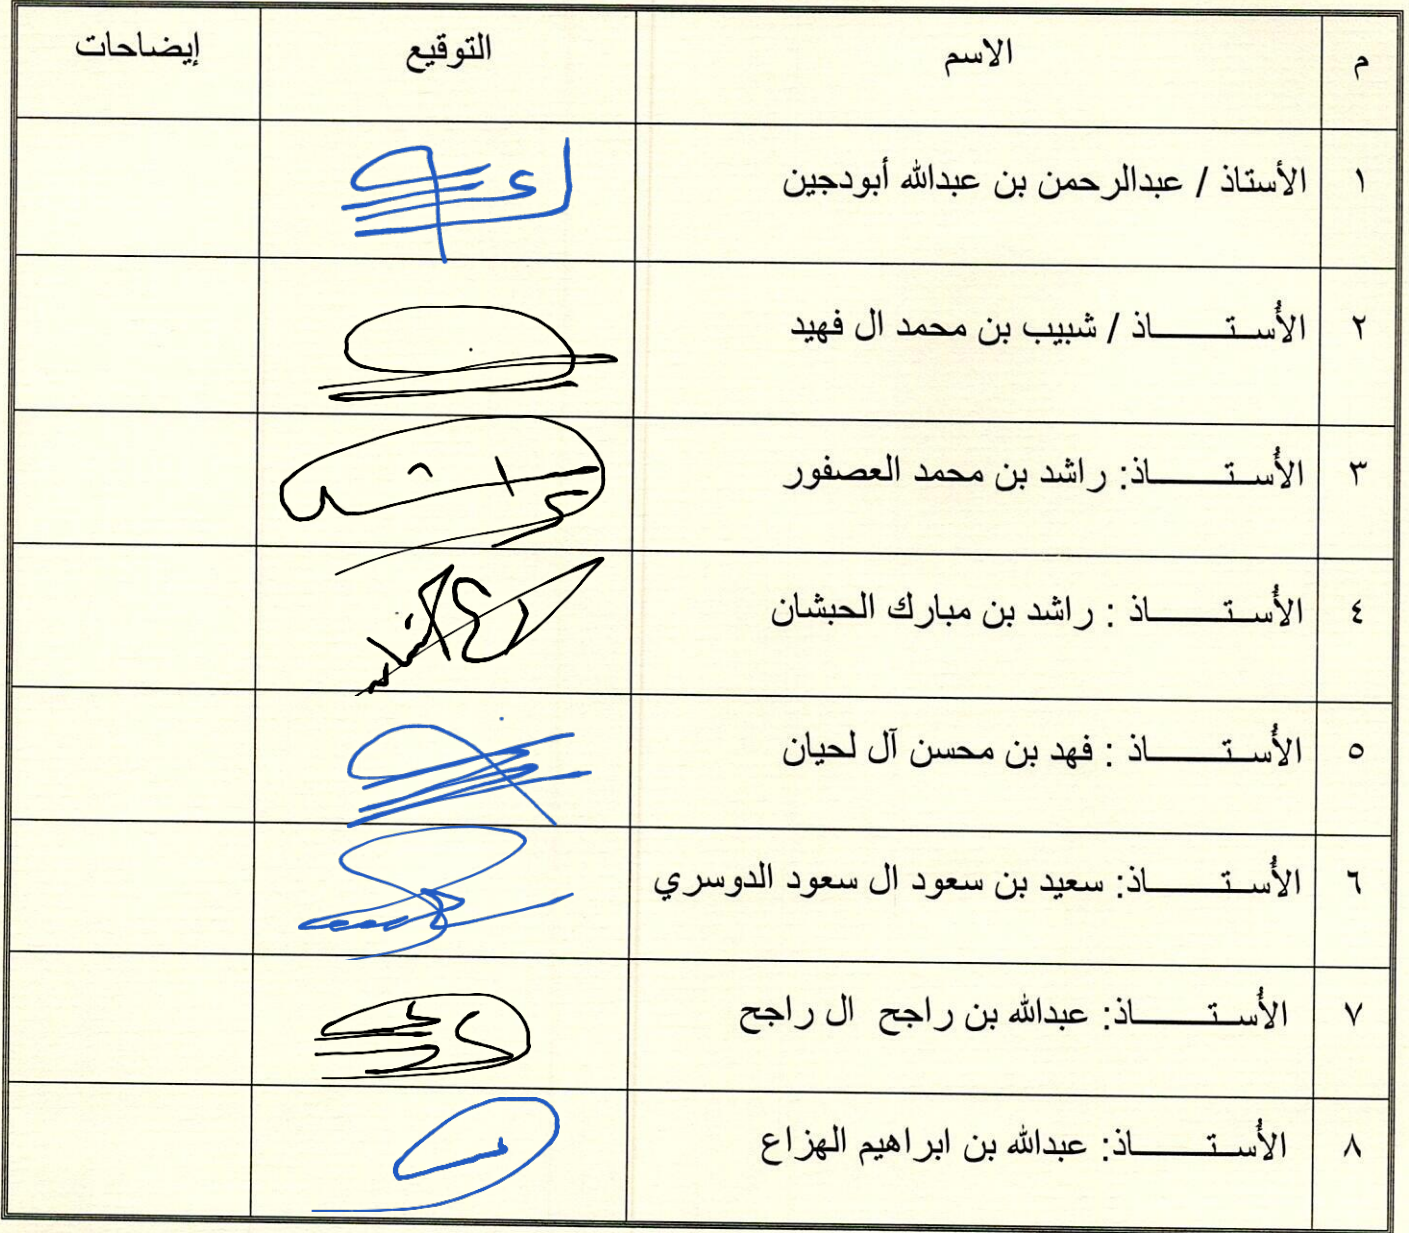 م الاسم التوقيع إيضاحات
١ الأستاذ / عبدالرحمن بن عبدالله أبودجين
٢ الأُستـــــاذ / شبيب بن محمد ال فهيد
٣ الأُستـــــاذ: راشد بن محمد العصفور
٤ الأُستـــــاذ : راشد بن مبارك الحبشان
٥ الأُستـــــاذ : فهد بن محسن آل لحيان
٦ الأُستـــــاذ: سعيد بن سعود ال سعود الدوسري
٧ الأُستـــــاذ: عبدالله بن راجح ال راجح
٨ الأُستـــــاذ: عبدالله بن ابراهيم الهزاع